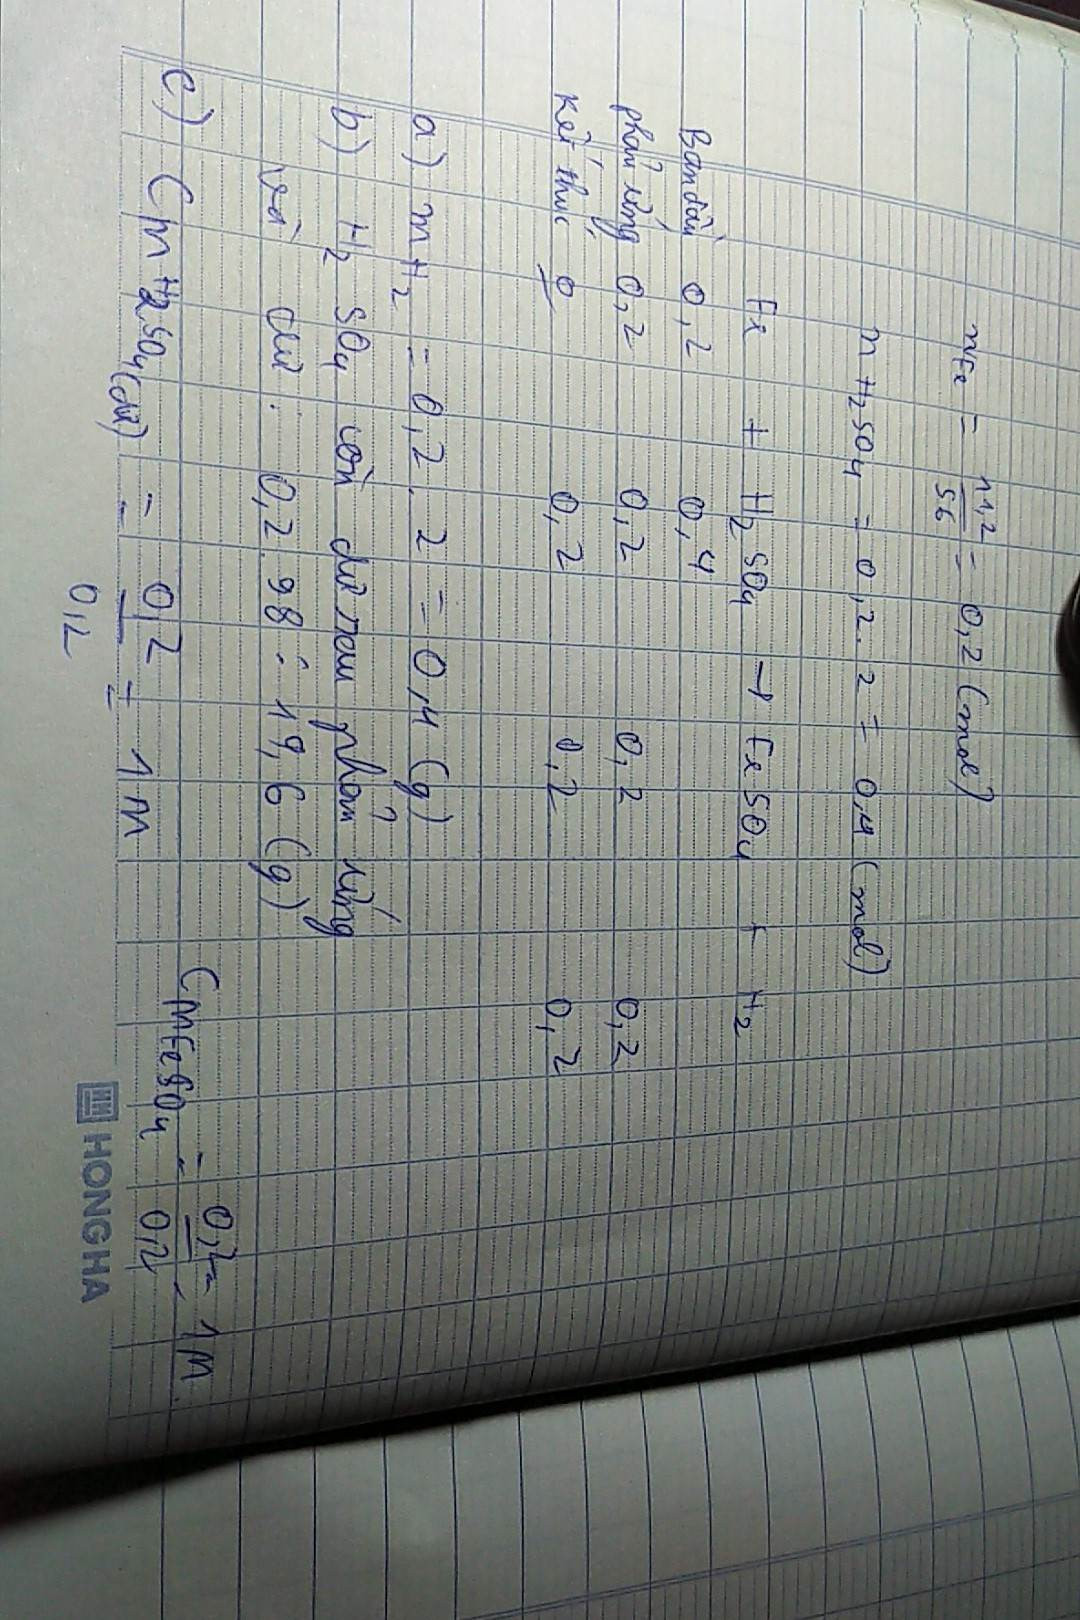 nFe = 11,2/56 = 0,2 (mol)
n H2SO4 = 0,2.2 = 0,4 (mol)
Fe + H2SO4 → FeSO4 + H2
Ban đầu 0,2 0,4
phản ứng 0,2 0,2 0,2 0,2
Kết thúc 0 0,2 0,2 0,2
a) mH2 = 0,2.2 = 0,4 (g)
b) H2SO4 còn dư sau phản ứng
và dư : 0,2.98 = 19,6 (g)
c) CM H2SO4(dư) = 0,2/0,2 = 1M
CM FeSO4 = 0,2/0,2 = 1M.
HONG HA